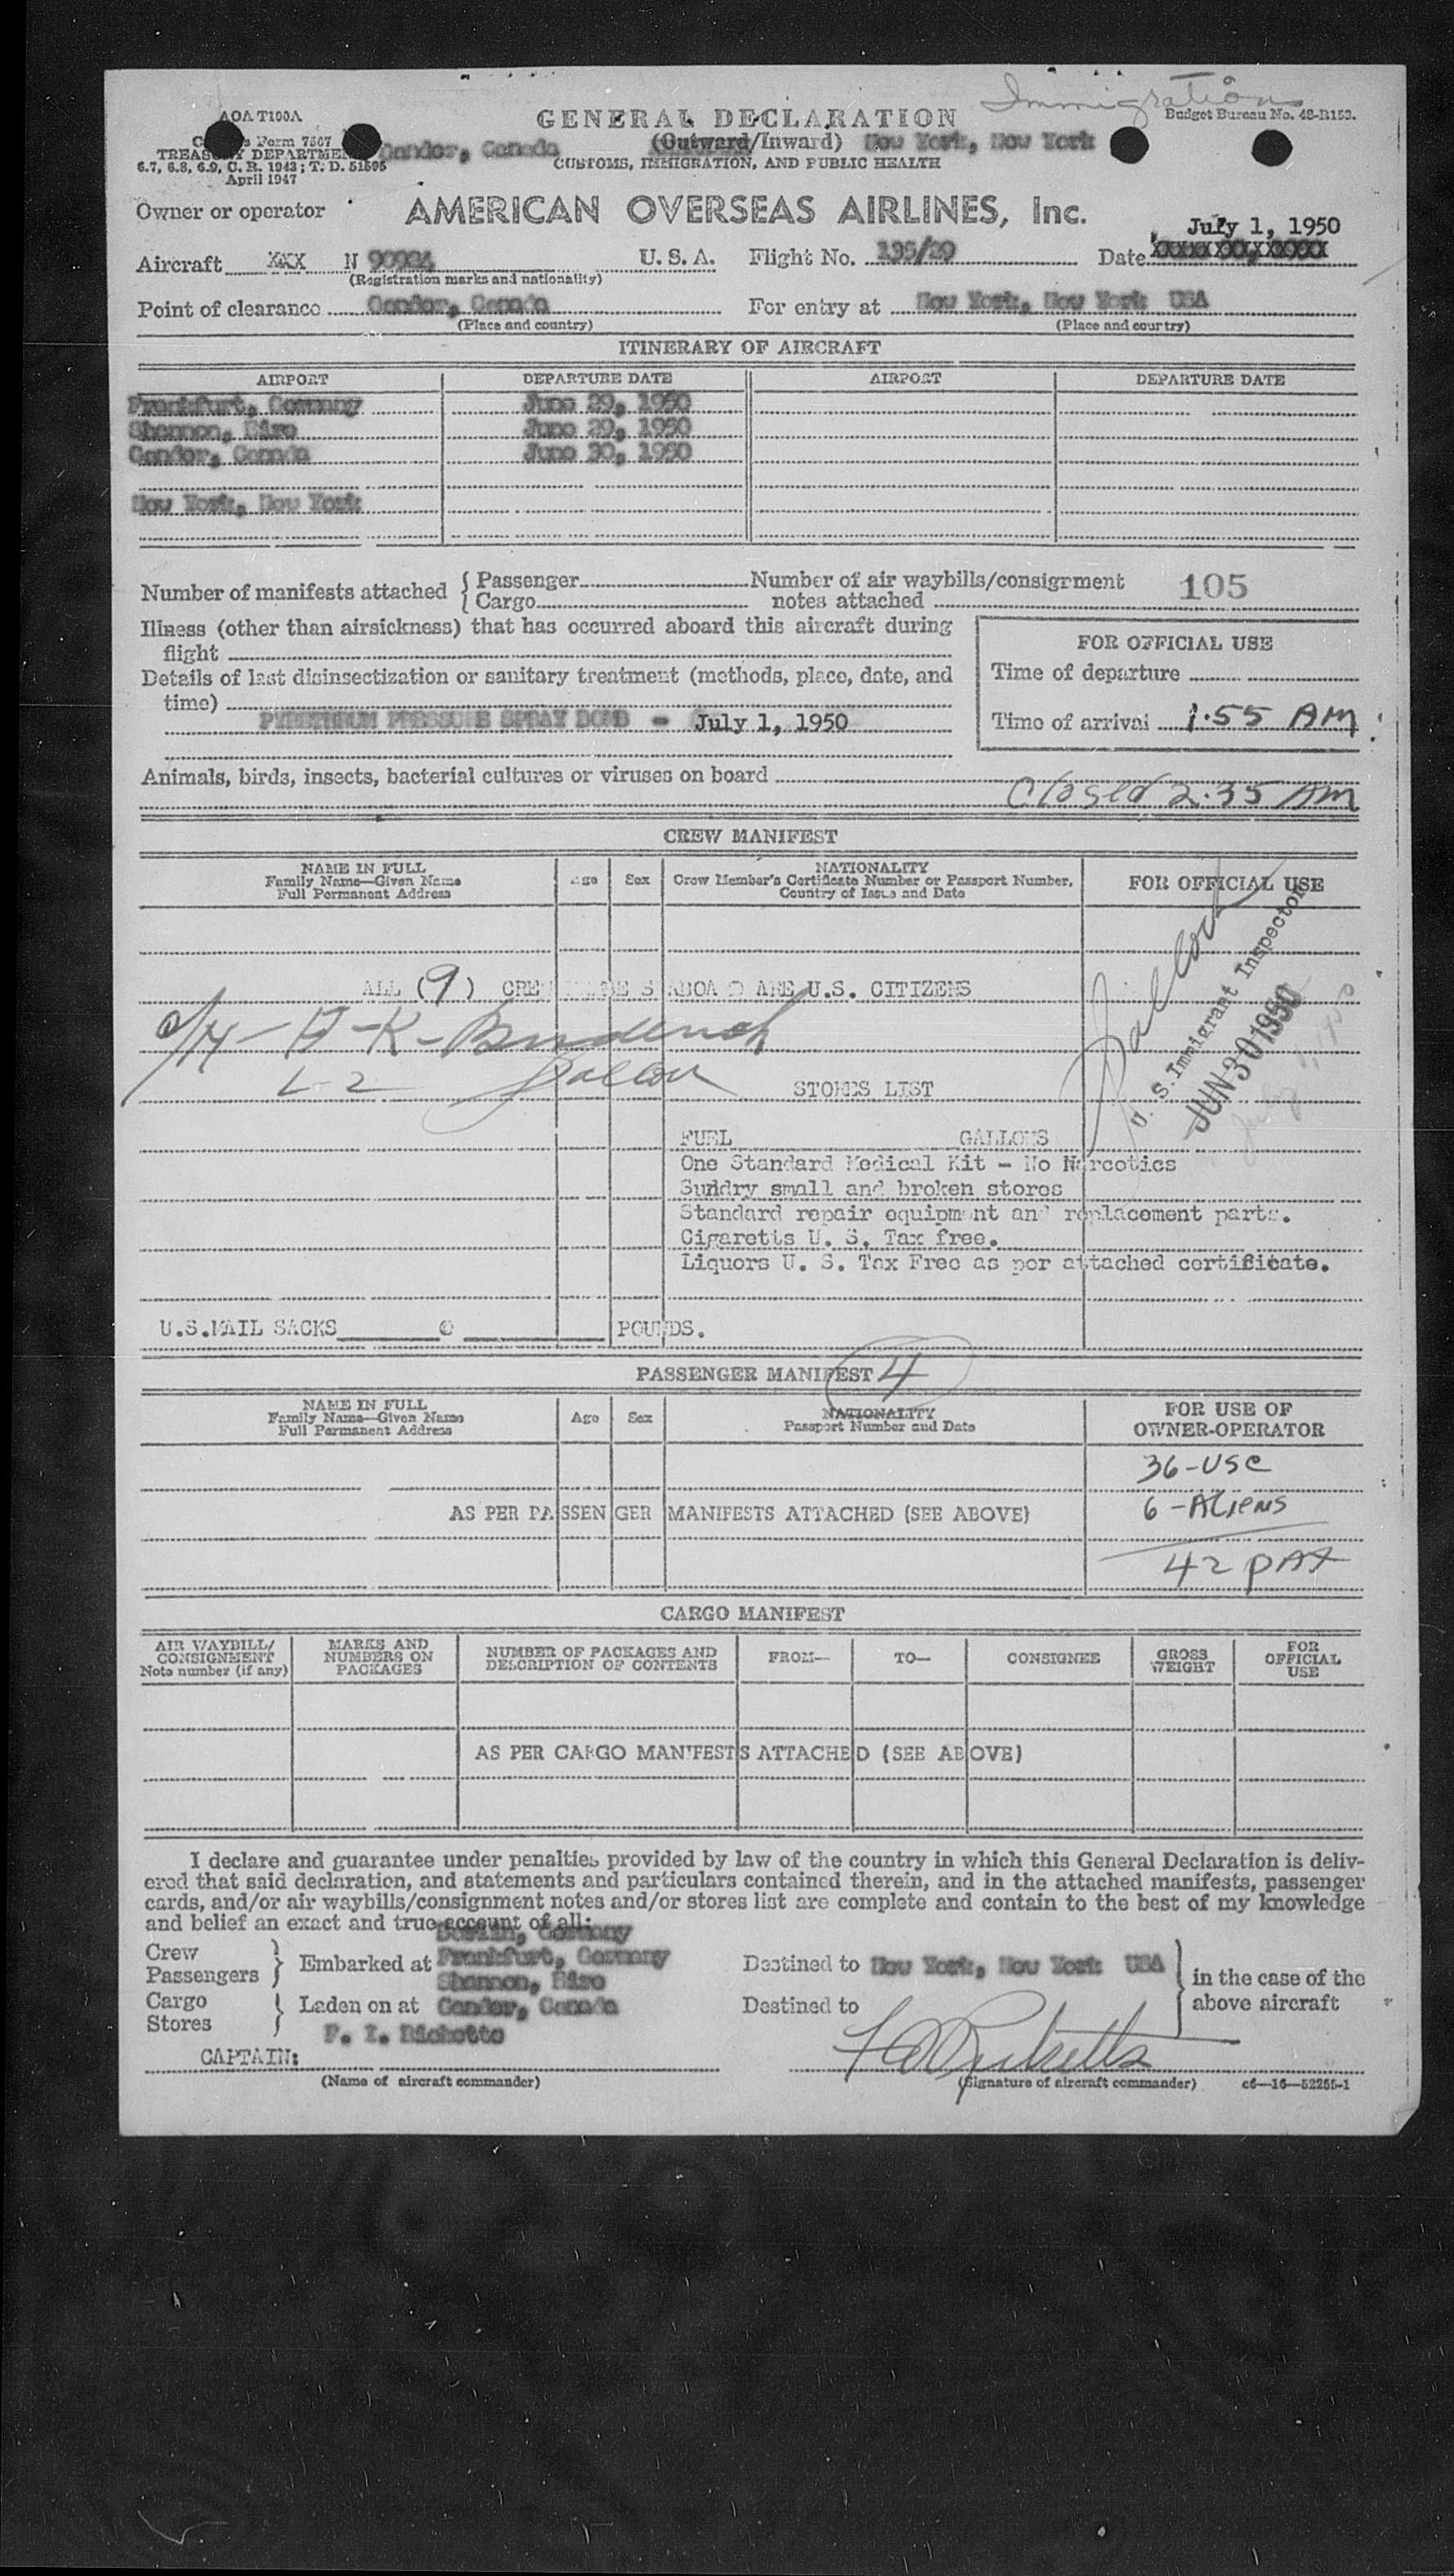 Immigration
AOA T100A
GENERAL DECLARATION
Budget Bureau No. 48-R153.
Form 7507
Gander, Canada
(Outward/Inward) New York, New York
TREASURY DEPARTMENT
CUSTOMS, IMMIGRATION, AND PUBLIC HEALTH
6.7, 6.8, 6.9, C. R. 1943; T. D. 51595
April 1947
Owner or operator
AMERICAN OVERSEAS AIRLINES, Inc.
July 1, 1950
Aircraft XXX N 90934 U. S. A. Flight No. Date
(Registration marks and nationality)
Point of clearance Gander, Canada For entry at New York, New York USA
(Place and country) (Place and country)
ITINERARY OF AIRCRAFT
AIRPORT DEPARTURE DATE AIRPORT DEPARTURE DATE
Frankfurt, Germany June 29, 1950
Shannon, Eire June 29, 1950
Gander, Canada June 30, 1950
New York, New York
Number of manifests attached { Passenger Number of air waybills/consignment 105
{ Cargo notes attached
Illness (other than airsickness) that has occurred aboard this aircraft during
flight
FOR OFFICIAL USE
Details of last disinsectization or sanitary treatment (methods, place, date, and
Time of departure
time)
PYRETHRUM PRESSURE SPRAY BOMB - July 1, 1950
Time of arrival 1:55 AM
Animals, birds, insects, bacterial cultures or viruses on board
Closed 2:35 AM
CREW MANIFEST
NAME IN FULL Age Sex NATIONALITY FOR OFFICIAL USE
Family Name—Given Name Crew Member's Certificate Number or Passport Number,
Full Permanent Address Country of Issue and Date
ALL (9) CREW MEMBERS ABOARD ARE U.S. CITIZENS
U. S. Immigrant Inspector
JUN 30 1950
July 1, 1950
L-2
STORES LIST
FUEL GALLONS
One Standard Medical Kit - No Narcotics
Sundry small and broken stores
Standard repair equipment and replacement parts.
Cigaretts U. S. Tax free.
Liquors U. S. Tax Free as per attached certificate.
U.S.MAIL SACKS @ POUNDS.
PASSENGER MANIFEST 4
NAME IN FULL Age Sex NATIONALITY FOR USE OF
Family Name—Given Name Passport Number and Date OWNER-OPERATOR
Full Permanent Address
36-USC
AS PER PASSENGER MANIFESTS ATTACHED (SEE ABOVE) 6-Aliens
42 PAX
CARGO MANIFEST
AIR WAYBILL/ MARKS AND NUMBER OF PACKAGES AND FROM— TO— CONSIGNEE GROSS FOR
CONSIGNMENT NUMBERS ON DESCRIPTION OF CONTENTS WEIGHT OFFICIAL
Note number (if any) PACKAGES USE
AS PER CARGO MANIFESTS ATTACHED (SEE ABOVE)
I declare and guarantee under penalties provided by law of the country in which this General Declaration is deliv-
ered that said declaration, and statements and particulars contained therein, and in the attached manifests, passenger
cards, and/or air waybills/consignment notes and/or stores list are complete and contain to the best of my knowledge
and belief an exact and true account of all:
Berlin, Germany
Crew
Passengers } Embarked at Frankfurt, Germany Destined to New York, New York USA } in the case of the
Shannon, Eire
Cargo
Stores } Laden on at Gander, Canada Destined to above aircraft
CAPTAIN: F. I. Ricketts
(Name of aircraft commander) (Signature of aircraft commander) c6—16—52255-1